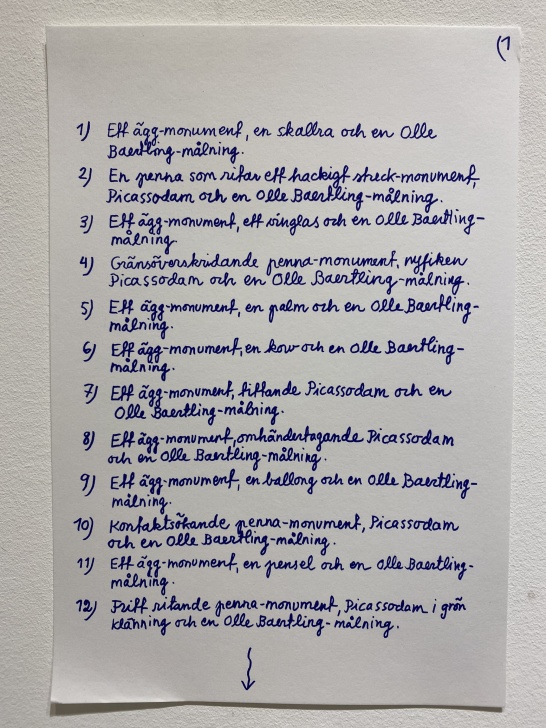 (1
1) Ett ägg-monument, en skallra och en Olle
Baertling-målning.
2) En penna som ritar ett hackigt streck-monument,
Picassodam och en Olle Baertling-målning.
3) Ett ägg-monument, ett vinglas och en Olle Baertling-
målning.
4) Gränsöverskridande penna-monument, nyfiken
Picassodam och en Olle Baertling-målning.
5) Ett ägg-monument, en palm och en Olle Baertling-
målning.
6) Ett ägg-monument, en korv och en Olle Baertling-
målning.
7) Ett ägg-monument, tittande Picassodam och en
Olle Baertling-målning.
8) Ett ägg-monument, omhändertagande Picassodam
och en Olle Baertling-målning.
9) Ett ägg-monument, en ballong och en Olle Baertling-
målning.
10) Kontaktsökande penna-monument, Picassodam
och en Olle Baertling-målning.
11) Ett ägg-monument, en pensel och en Olle Baertling-
målning.
12) Pritt ritande penna-monument, Picassodam i grön
klänning och en Olle Baertling-målning.